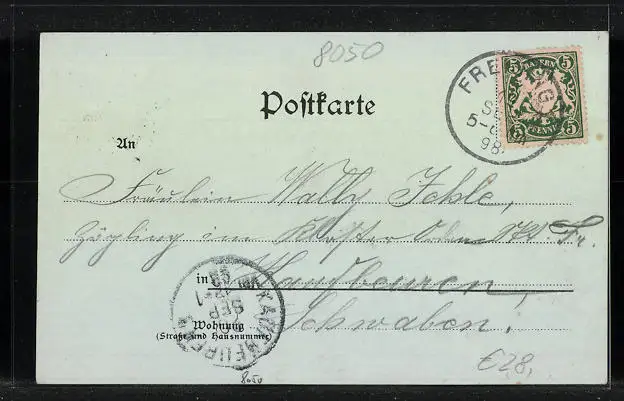 8050
Postkarte
FRE
SE
5-6
98.
5 BAYERN 5
5 PFENNIG 5
An
Fräulein Wally Jehle,
Zögling im Kloster Fr.
in Kaufbeuren,
KAUFBEUREN
SEP
98
Wohnung
(Straße und Hausnummer)
Schwaben.
€28,
8050